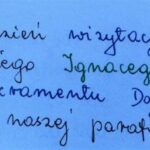 zień wizytac
iego Ignaceg
kramentu Do
naszej parafi